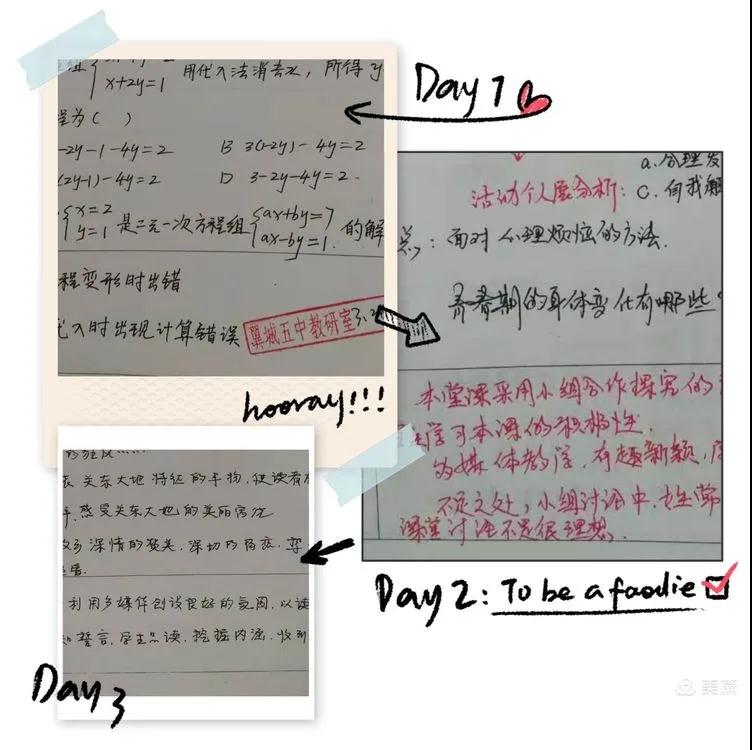 Day 1
x+2y=1 用代入法消去x，所得y
程为（ ）
-2y-1-4y=2 B 3(1-2y)-4y=2
(2y-1)-4y=2 D 3-2y-4y=2.
{x=2 y=1 是二元一次方程组 {ax+by=7 ax-by=1. 的解
程变形时出错
代入时出现计算错误
翼城五中教研室
hooray!!!
a.合理发
活动个人展分析： C. 自我
面对心理烦恼的方法.
青春期的身体变化有哪些
本堂课采用小组合作探究的
学习本课的积极性.
的媒体教学，有趣新颖，
不足之处，小组讨论中，
课堂讨论不是很理想.
Day 2: To be a foodie
关东大地特征的事物，使读者
感受关东大地的美丽富饶
深情的赞美，深切的
利用多媒体创设良好的氛围，以读
誓言，学生 读，挖掘内涵，收到
Day 3
美篇